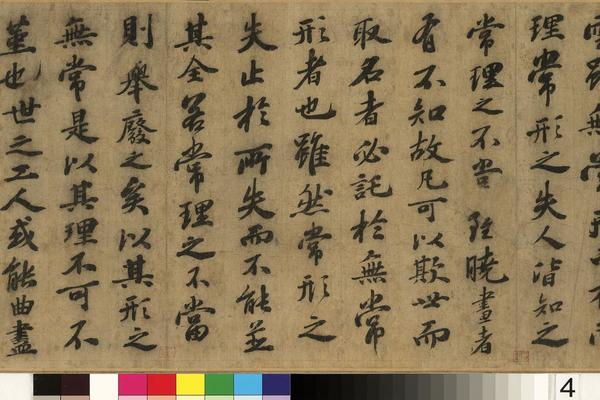 雲雖無常形而
理常形之失人皆知之
常理之不當雖曉畫者
有不知故凡可以欺世而
取名者必託於無常
形者也雖然常形之
失止於所失而不能病
其全若常理之不當
則舉廢之矣以其形之
無常是以其理不可不
謹也世之工人或能曲盡
4